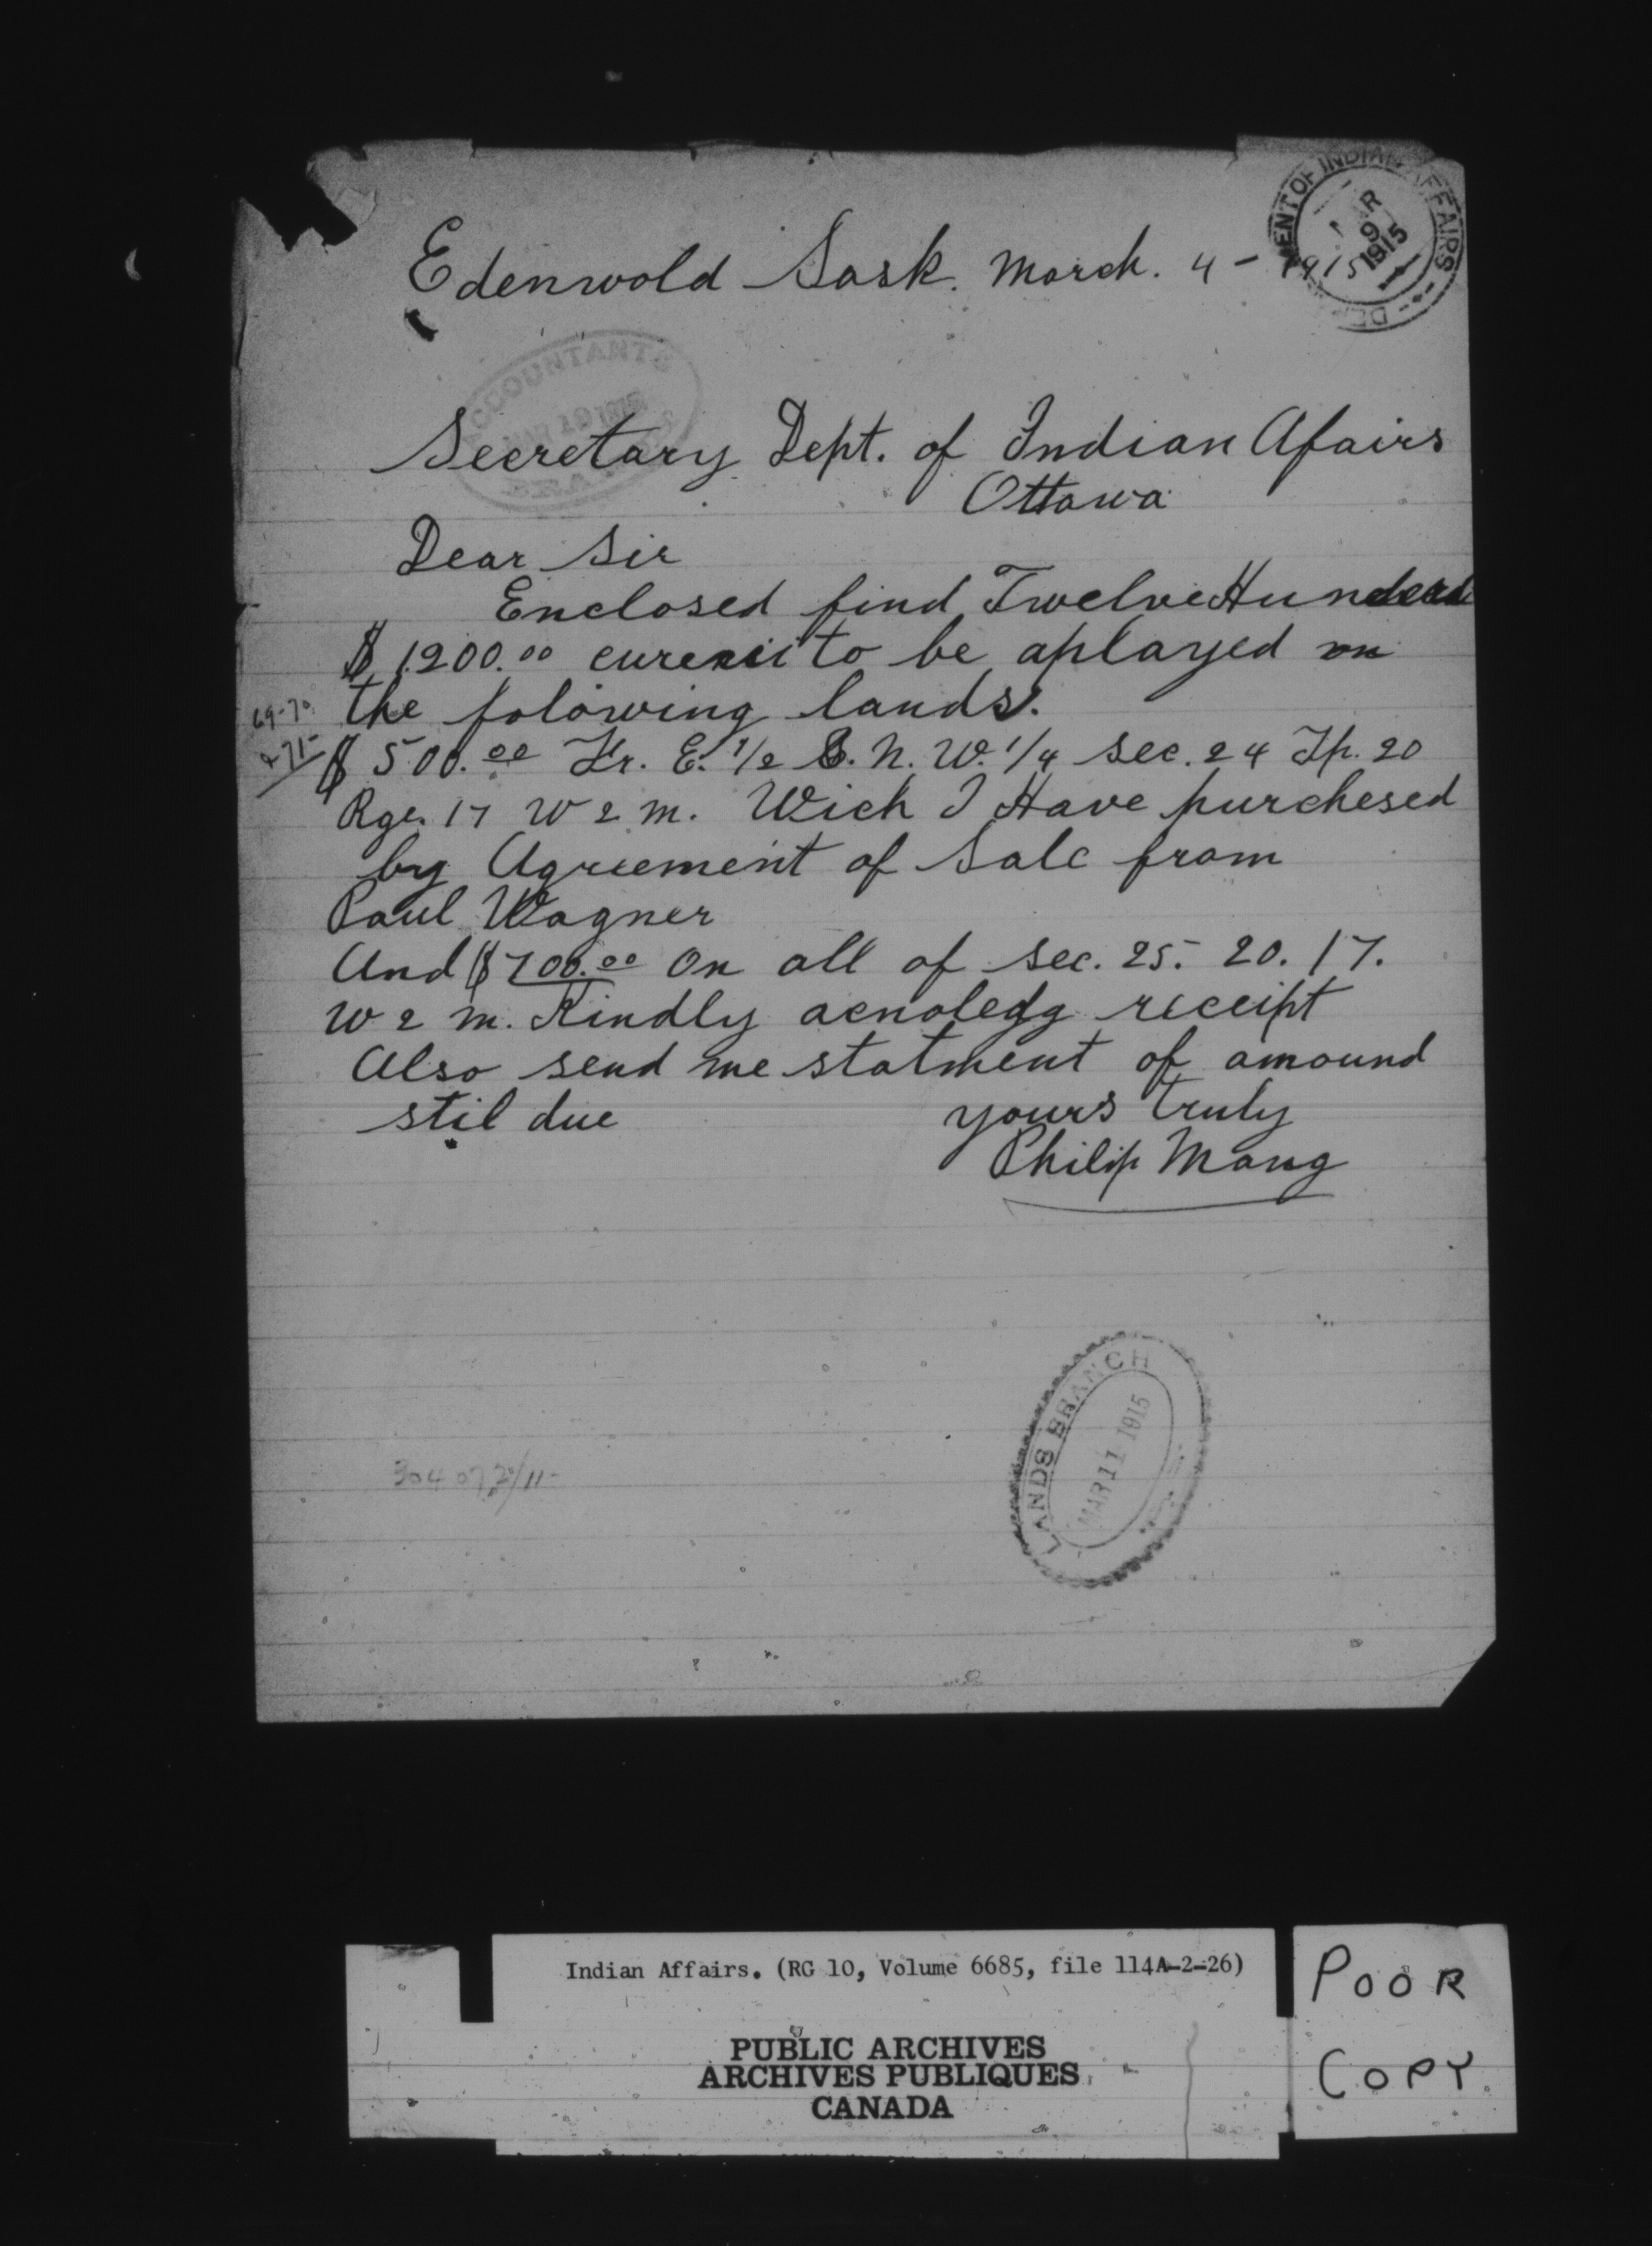 Edenwold Sask. March. 4 - 1915
DEPARTMENT OF INDIAN AFFAIRS
MAR 9 1915
ACCOUNTANTS
MAR 19 1915
Secretary Dept. of Indian Afairs
Ottawa
Dear Sir
Enclosed find Twelve Hunderd
$1200.00 to be aplayed on
69-70
the folowing lands.
& 71
$ 500.00 Fr. E. 1/2 & N. W. 1/4 Sec. 24 Tp. 20
Rge. 17 W 2 m. Wich I Have purchesed
by Agreement of Sale from
Paul Wagner
And $700.00 On all of Sec. 25. 20. 17.
W 2 m. Kindly acnoledg receipt
Also send me statment of amound
stil due yours truly
Philip Mang
LANDS BRANCH
MAR 11 1915
Indian Affairs. (RG 10, Volume 6685, file 114A-2-26)
PUBLIC ARCHIVES
ARCHIVES PUBLIQUES
CANADA
POOR
COPY